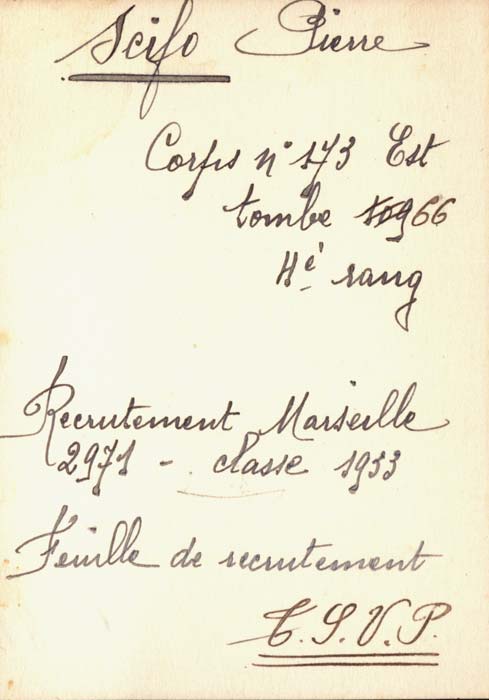 Scifo Pierre
Corps n° 173 Est
tombe 966
4è rang
Recrutement Marseille
2971 - classe 1933
Feuille de recrutement
T.S.V.P.